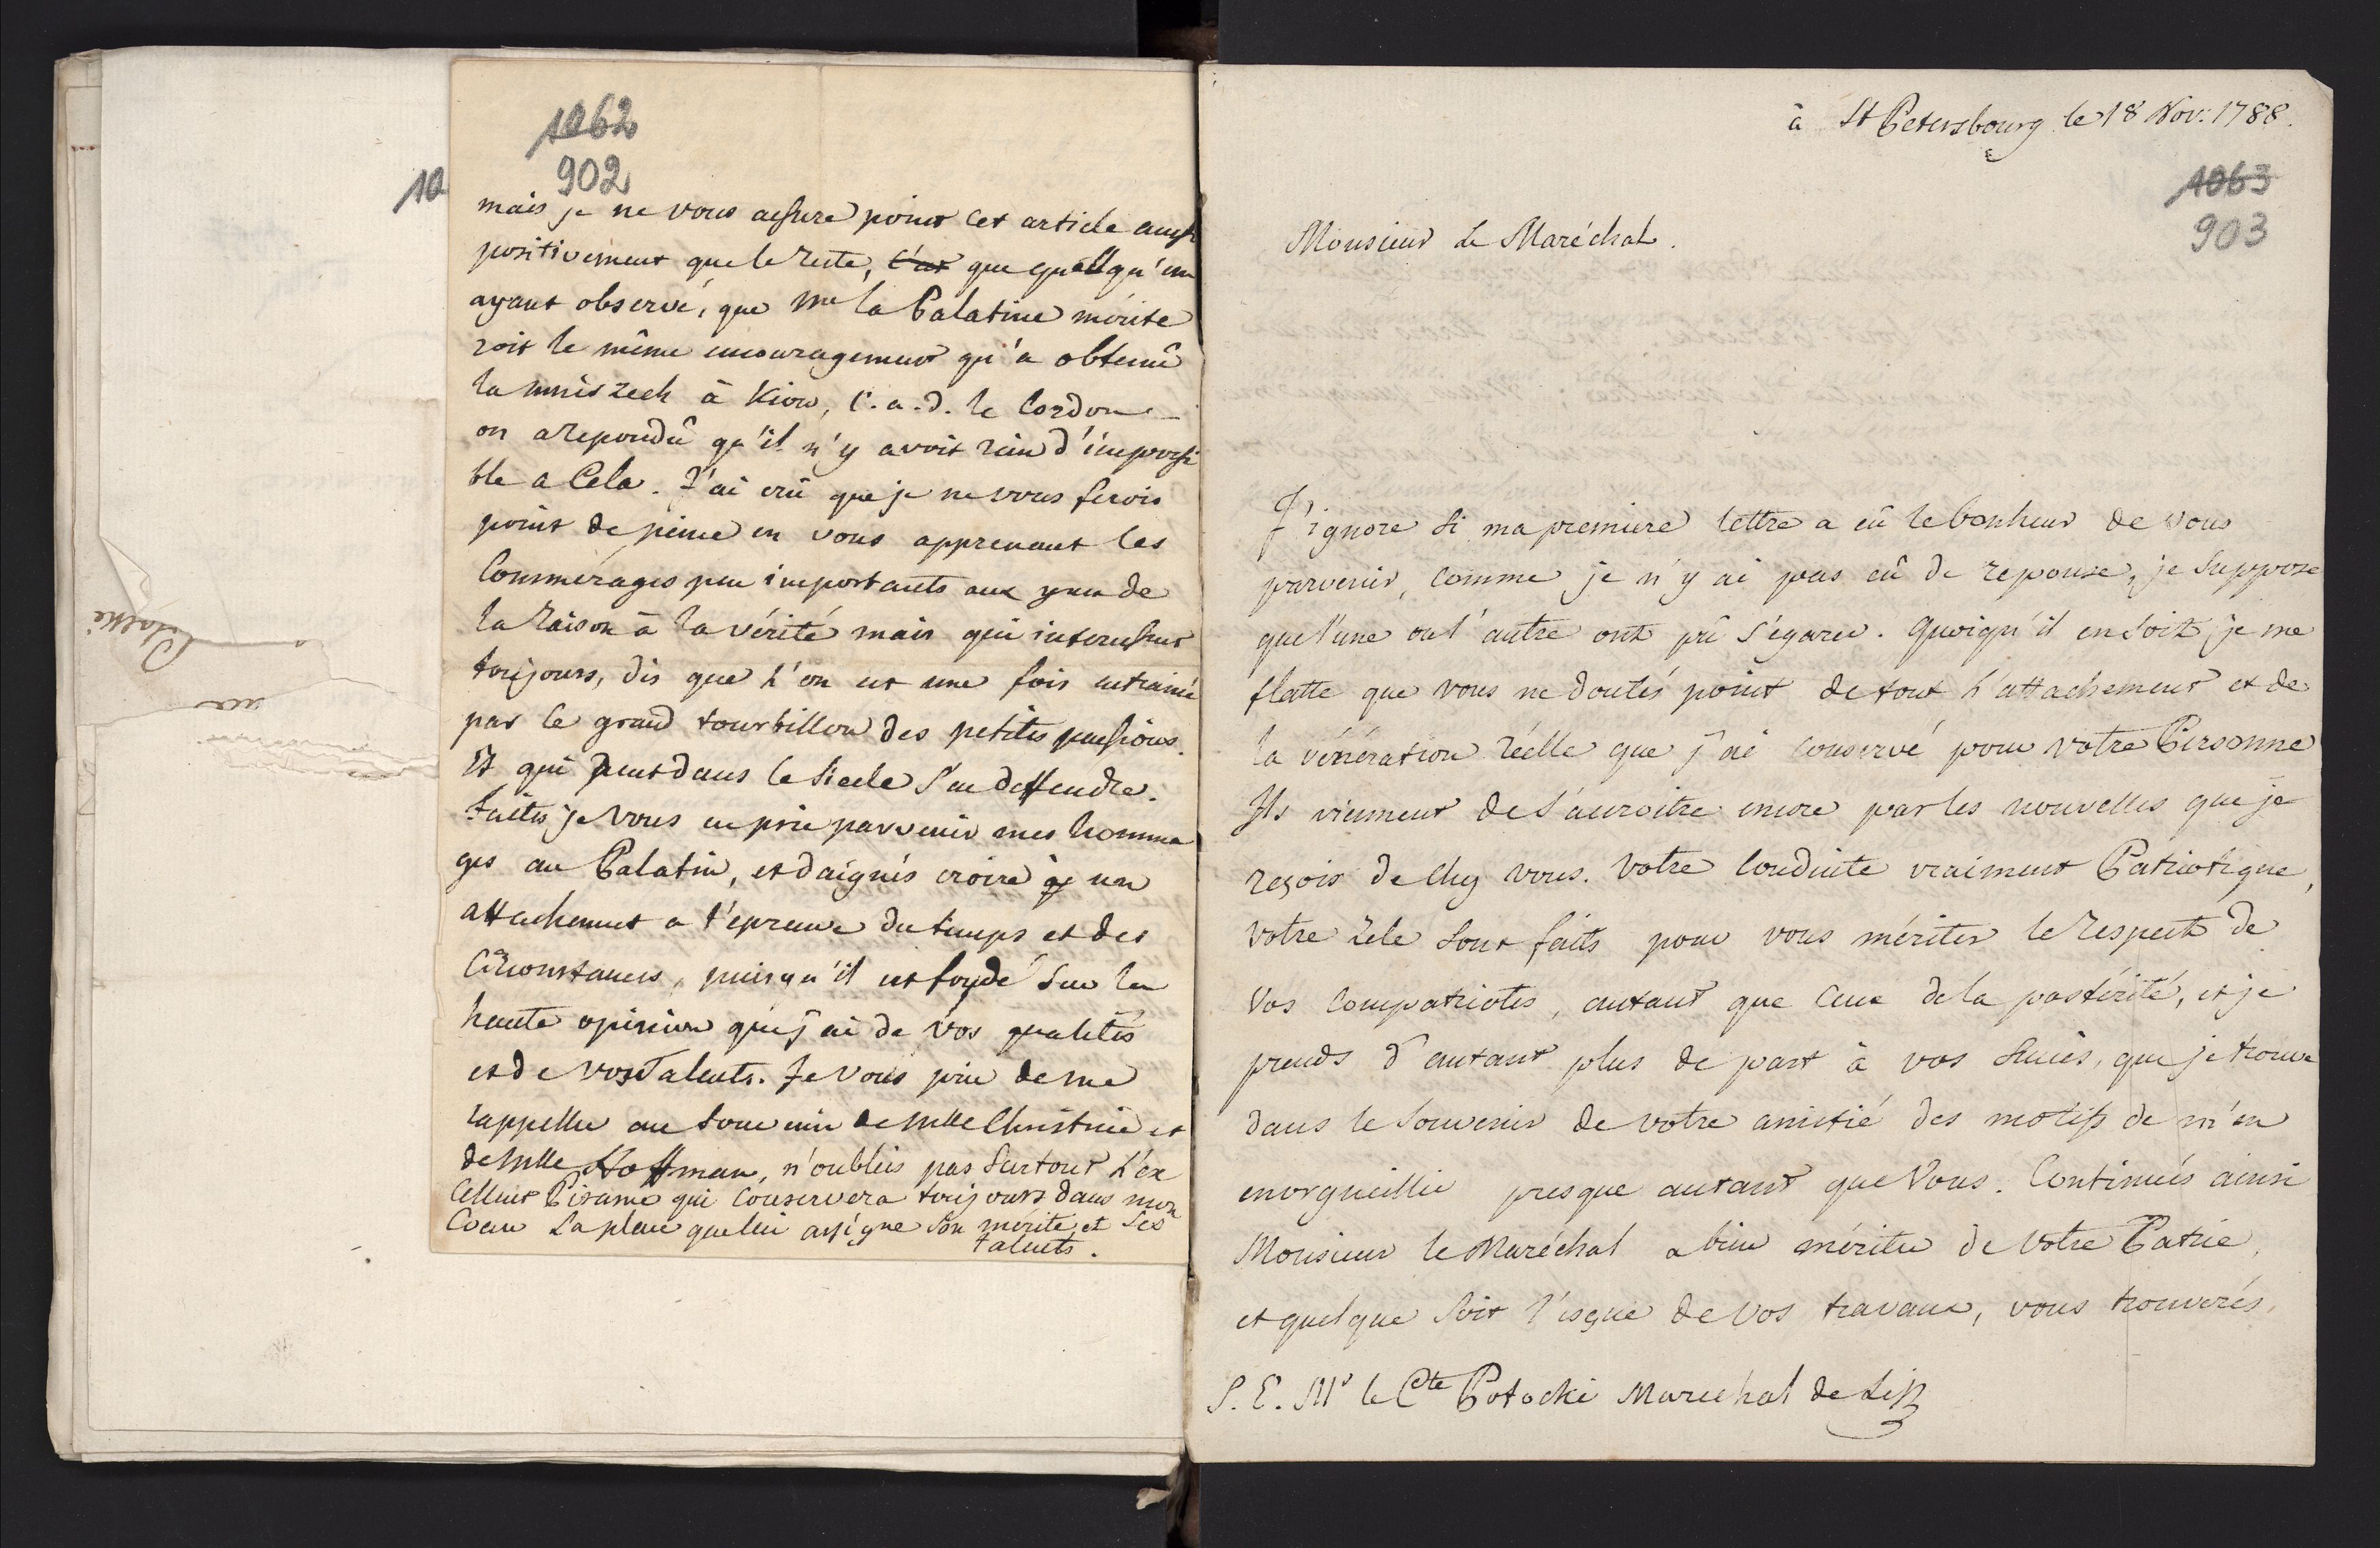 1062
902
10
mais je ne vous assure point cet article aussi
positivement que le reste, c'est que quelqu'un
ayant observé, que Me la Palatine mérite
roit le même encouragement qu'a obtenû
la Mniszech à Kiow, c.a.d. le Cordon
on a repondû qu'il n'y avoit rien d'impossi
ble a cela. J'ai crû que je ne vous ferois
point de peine en vous apprenant les
Commérages peu importants aux yeux de
la raison à la vérité mais qui interessent
toujours, dès que l'on est une fois entrainé
par le grand tourbillon des petites passions.
Et qui peut dans le siecle s'en deffendre.
faites je vous en prie parvenir mes homma
ges au Palatin, et daignés croire a un
attachement a l'épreuve du temps et des
Circonstances, puisqu'il est fondé sur la
haute opinion que j'ai de vos qualités
et de vos Talents. Je vous prie de me
rappeller au souvenir de Mlle Christine et
de Mlle Hoffman, n'oubliés pas surtout l'ex
cellent Pisane qui conservera toujours dans mon
Coeur la place que lui assigne son mérite et ses
talents.
à St Petersbourg le 18 Nov: 1788.
1063
903
Monsieur Le Maréchal.
J'ignore si ma premiere lettre a eû le bonheur de vous
parvenir, comme je n'y ai pas eû de reponse, je suppose
que l'une ou l'autre ont pû s'égarer. Quoiqu'il en soit, je me
flatte que vous ne doutés point de tout l'attachement et de
la vénération réelle que j'ai conservé pour votre Personne
Ils viennent de s'accroitre encore par les nouvelles que je
reçois de chez vous. Votre conduite vraiment Patriotique,
votre zele sont faits pour vous mériter le respect de
vos compatriotes, autant que ceux de la postérité, et je
prends d'autant plus de part à vos succès, que je trouve
dans le souvenir de votre amitié des motifs de m'en
enorgueillir presque autant que Vous. Continués ainsi
Monsieur le Maréchal a bien mériter de votre Patrie,
et quelque soit l'issue de vos travaux, vous trouverés
S. E. Mr le Cte Potocki Marechal de Lith